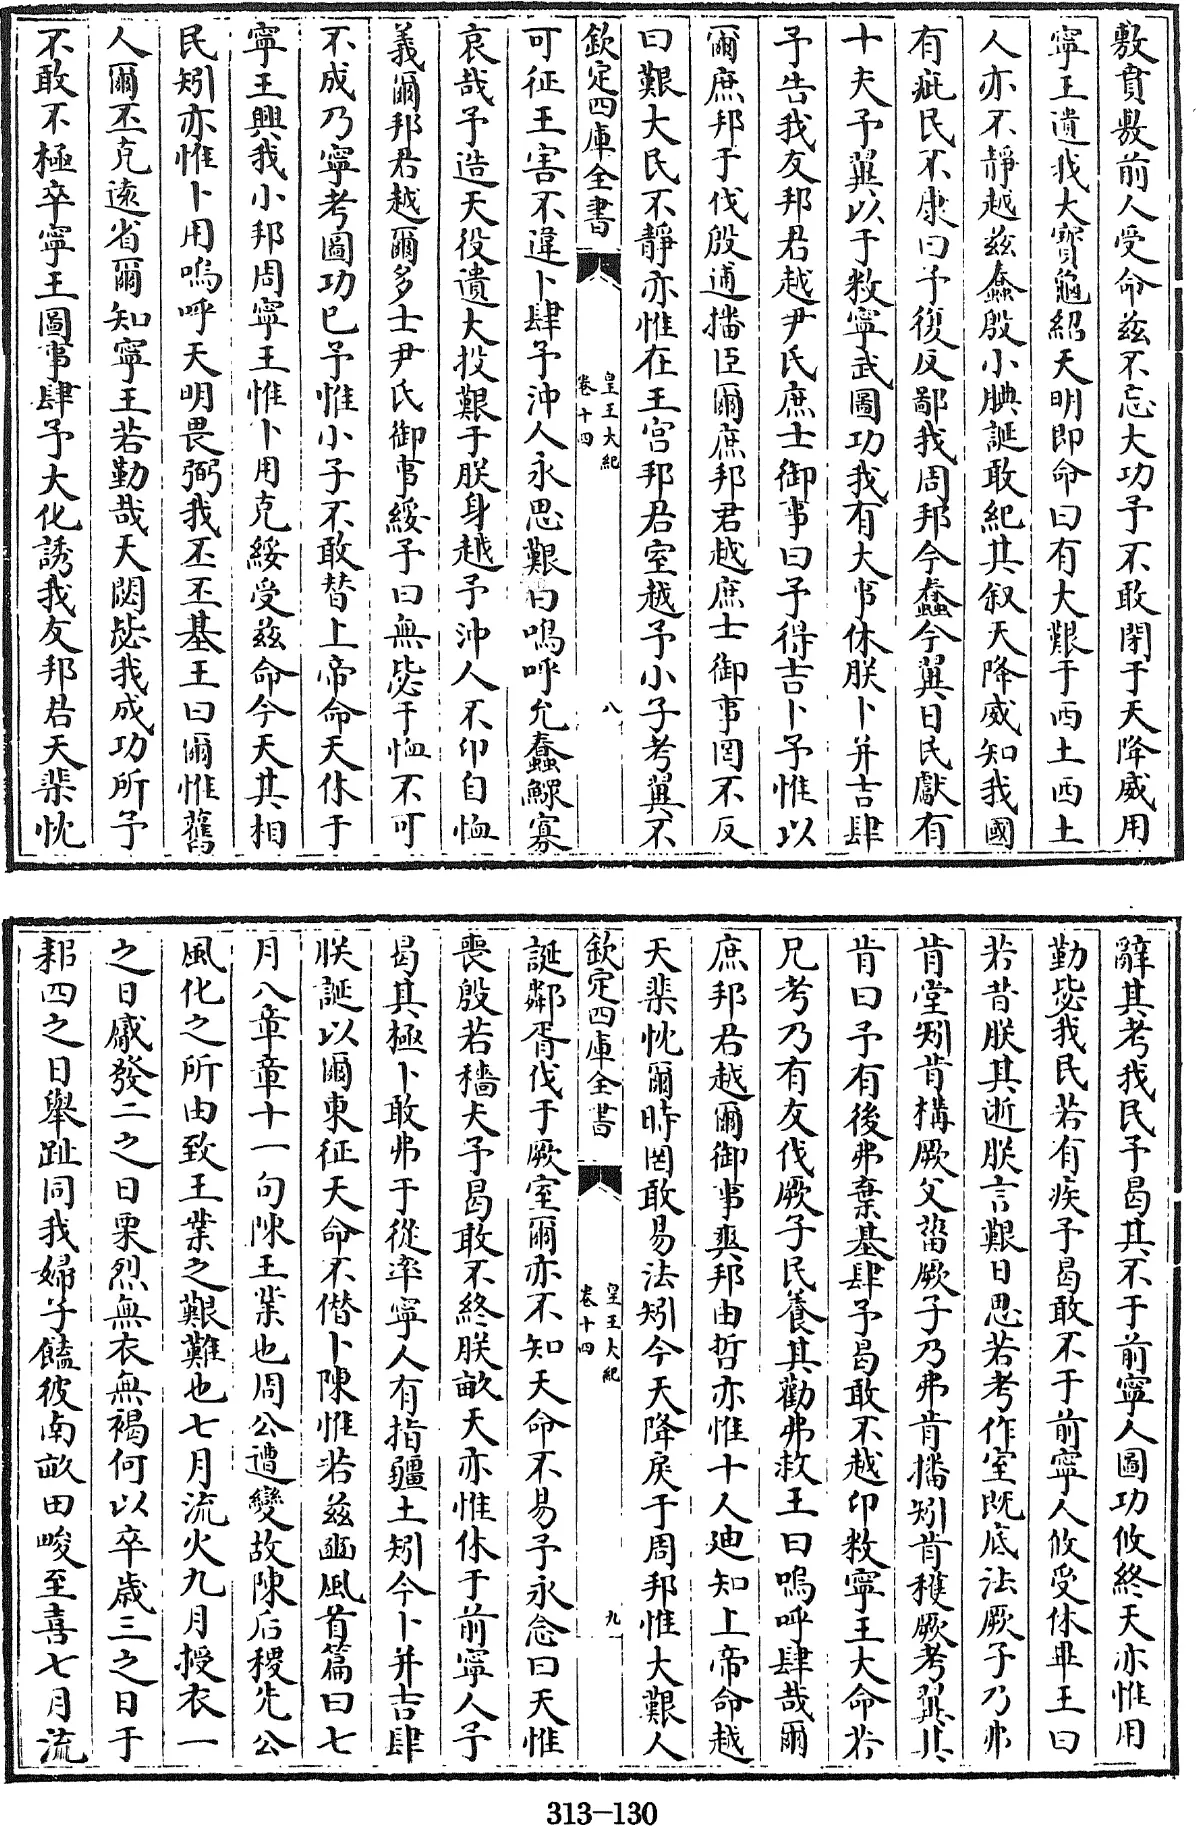 敷賁敷前人受命兹不忘大功予不敢閉于天降威用
寧王遺我大寳龜紹天明即命曰有大艱于西土西土
人亦不靜越兹蠢殷小腆誕敢紀其叙天降威知我國
有疵民不康曰予復反鄙我周邦今蠢今翼日民獻有
十夫予翼以于敉寧武圖功我有大事休朕卜并吉肆
予告我友邦君越尹氏庶士御事曰予得吉卜予惟以
爾庶邦于伐殷逋播臣爾庶邦君越庶士御事罔不反
曰艱大民不靜亦惟在王宫邦君室越予小子考翼不
欽定四庫全書
皇王大紀
卷十四
八
可征王害不違卜肆予沖人永思艱曰嗚呼允蠢鰥寡
哀哉予造天役遺大投艱于朕身越予沖人不卬自恤
義爾邦君越爾多士尹氏御事綏予曰無毖于恤不可
不成乃寧考圖功已予惟小子不敢替上帝命天休于
寧王興我小邦周寧王惟卜用克綏受兹命今天其相
民矧亦惟卜用嗚呼天明畏弼我丕丕基王曰爾惟舊
人爾丕克遠省爾知寧王若勤哉天閟毖我成功所予
不敢不極卒寧王圖事肆予大化誘我友邦君天棐忱
辭其考我民予曷其不于前寧人圖功攸終天亦惟用
勤毖我民若有疾予曷敢不于前寧人攸受休畢王曰
若昔朕其逝朕言艱日思若考作室既底法厥子乃弗
肯堂矧肯構厥父菑厥子乃弗肯播矧肯穫厥考翼其
肯曰予有後弗棄基肆予曷敢不越卬敉寧王大命若
兄考乃有友伐厥子民養其勸弗救王曰嗚呼肆哉爾
庶邦君越爾御事爽邦由哲亦惟十人迪知上帝命越
天棐忱爾時罔敢易法矧今天降戾于周邦惟大艱人
欽定四庫全書
皇王大紀
卷十四
九
誕鄰胥伐于厥室爾亦不知天命不易予永念曰天惟
喪殷若穡夫予曷敢不終朕畝天亦惟休于前寧人予
曷其極卜敢弗于從率寧人有指疆土矧今卜并吉肆
朕誕以爾東征天命不僭卜陳惟若兹豳風首篇曰七
月八章章十一句陳王業也周公遭變故陳后稷先公
風化之所由致王業之艱難也七月流火九月授衣一
之日觱發二之日栗烈無衣無褐何以卒歳三之日于
耜四之日舉趾同我婦子饁彼南畝田畯至喜七月流
313-130